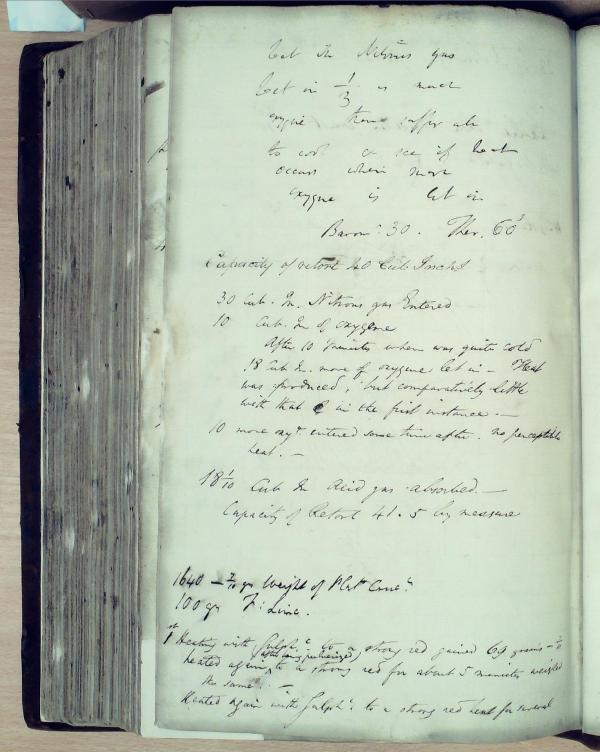 Let the Nitrous gas
let in 1/3 as much
oxygne then suffer all
to cool & see if heat
occurs when more
oxygne is let in
Baromr 30. Ther. 60°
Capacity of retort 40 Cub Inches
30 Cub. In. Nitrous gas Entered
10 Cub. In of oxygene
After 10 minutes when was quite cold
18 Cub In. more of oxygene let in - Heat
was produced, but comparatively little
with that in the first instance. —
10 more oxyn. entered some time after. no perceptible
heat. —
18 1/10 Cub In Acid gas absorbed. —
Capacity of Retort 41.5 by measure
1640 — 7/10 grs Weight of Platm Cruce
100 grs Fl: Lime.
1st Heating with Sulphc to a strong red gained 69 grains
(after being pulverized)
heated again to a strong red for about 5 minutes weighed
the same. —
Heated Again with Sulphc. to a strong red heat for several